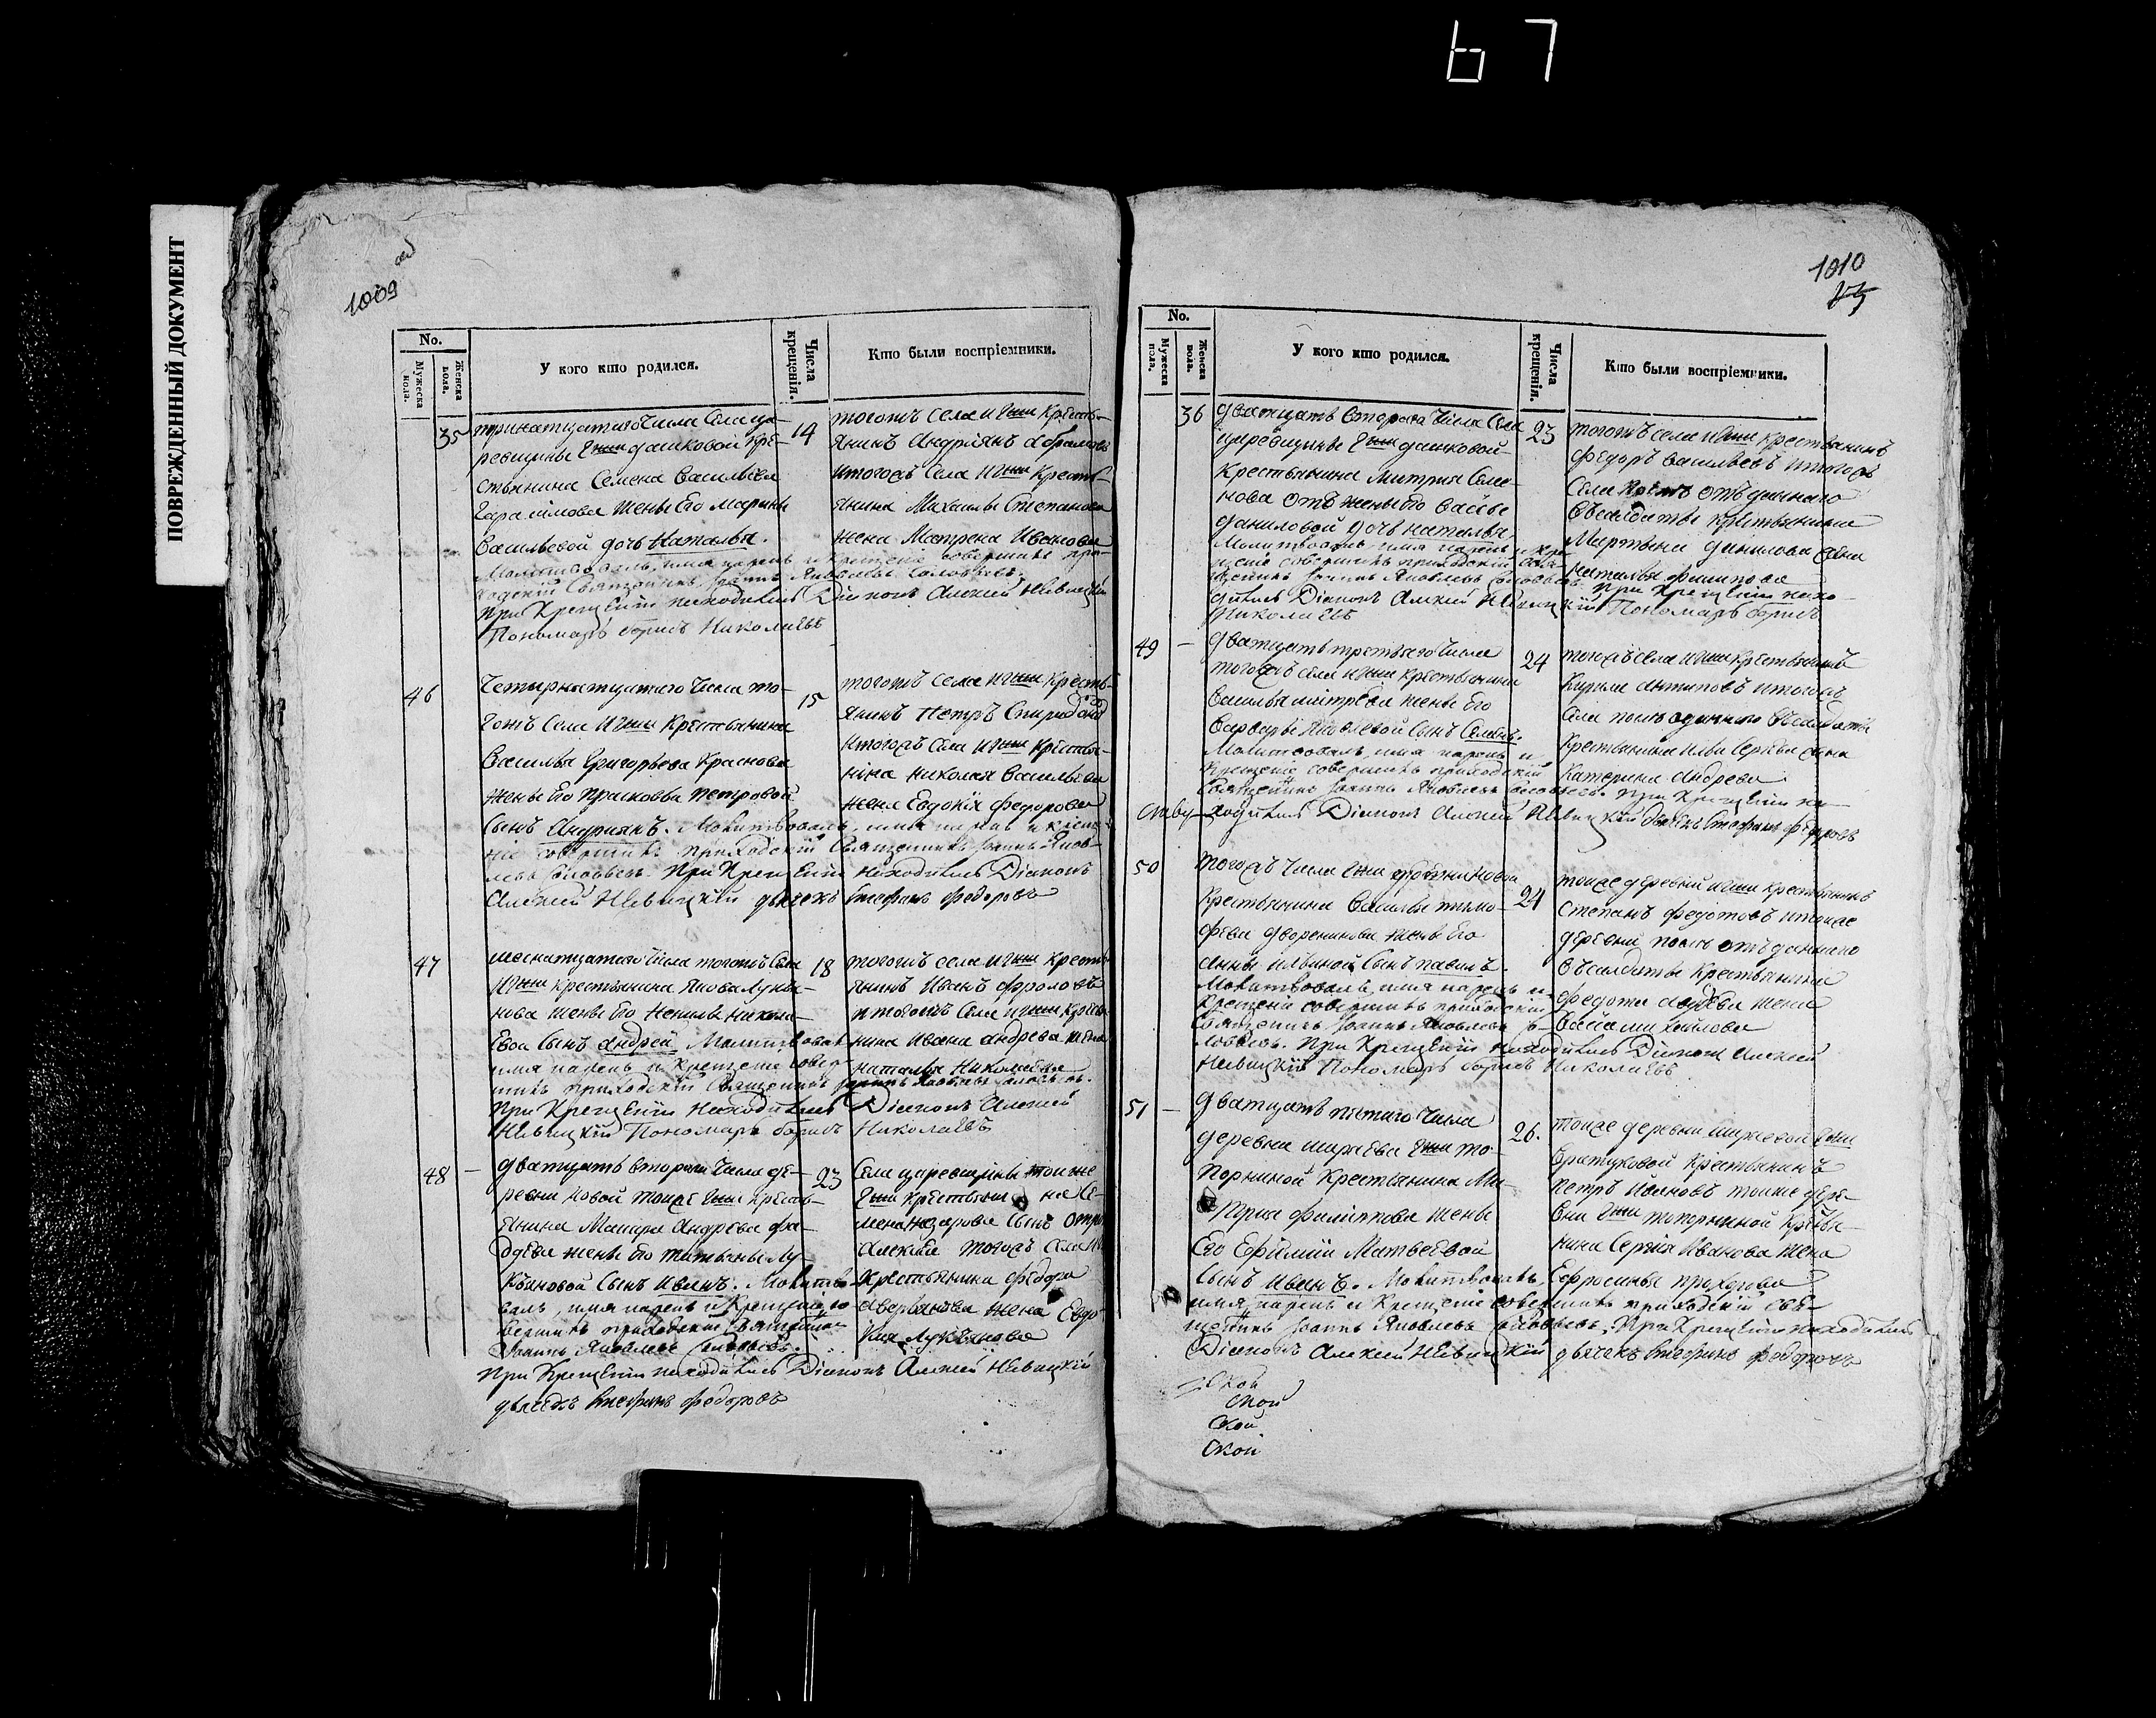 67
ПОВРЕЖДЕННЫЙ ДОКУМЕНТ
1009
No.
Мужеска пола.
Женска пола.
У кого кто родился.
Числа крещенія.
Кто были воспріемники.
35
тринатцатаго числа Села ца-
ревщины Гжи дашковой кре-
стьянина Семена Васильева
Герасимова жены Его Марины
Васильевой дочь Наталья.
Молитвовалъ, имя нарекъ и крещеніе совершилъ при-
ходскій Священникъ Іоаннъ Яковлевъ Соловьевъ.
При Крещеніи находились Діаконъ Алексей Невицкій
Пономарь борисъ Николаевъ
14
тогожъ села и гжи Кресть-
янинъ Андріянъ абрамовъ
итогожъ Села и гжи Кресть-
янина Михаилы Степанова
жена Матрена Иванова
46
Четырнатцатаго числа то-
гожъ Села и гжи Крестьянина
Василья Григорьева Краснова
жены Его Прасковьи Петровой
Сынъ Андриянъ. Молитвовалъ, имя нарекъ и креще-
ніе совершилъ приходскій Священникъ Іоаннъ Яков-
левъ Соловьевъ. При Крещеніи находились Діаконъ
Алексей Невицкій дьячекъ Стефанъ Федоровъ
15
тогожъ села и гжи Кресть-
янинъ Петръ Спиридоновъ
итогожъ Села и гжи Крестья-
нина Николая Васильева
жена Евдокія Федорова
47
шеснатцатаго числа тогожъ Села
и гжи крестьянина Якова Лукья-
нова жены Его Ненилы Никола-
евой Сынъ андрей. Молитвовалъ
имя нарекъ и Крещеніе совер-
шилъ приходскій Священникъ Іоаннъ Яковлевъ Соловьевъ.
При Крещеніи находились Діаконъ Алексей
Невицкій Пономарь борисъ Николаевъ
18
тогожъ села и гжи Кресть-
янинъ Иванъ Фроловъ
и тогожъ Села и гжи Крестья-
нина Ивана андрева жена
Наталья Николаева
48
дватцать втораго числа де-
ревни новой тойже гжи Кресть-
янина Макара Андрева
жены Его татьяны Лу-
кьяновой Сынъ Иванъ. Молитво-
валъ, имя нарекъ и Крещеніе со-
вершилъ приходскій Священникъ
Іоаннъ Яковлевъ Соловьевъ.
При Крещеніи находились Діаконъ Алексей Невицкій
дьячекъ Стефанъ Федоровъ
23
Села царевщины тойже
гжи крестьянина Се-
мена Назарова Сынъ
Алексей тогожъ Села
Крестьянина Федора
аверьянова жена Евдо-
кия Лукьянова
1010
No.
Мужеска пола.
Женска пола.
У кого кто родился.
Числа крещенія.
Кто были воспріемники.
36
дватцать втораго числа Села
царевщины Гжи дашковой
крестьянина Митрия Семе-
нова отъ жены Его Вассы
даниловой дочь наталья
Молитвовалъ имя нарекъ и кре-
щеніе совершилъ приходскій Свя-
щенникъ Іоаннъ Яковлевъ Соловьевъ. При Крещеніи нахо-
дились Діаконъ Алексей Невицкій Пономарь борисъ
Николаевъ
23
тогожъ села и гжи крестьянинъ
федоръ васильевъ итогожъ
Села отъданнаго
въсалдаты крестьянина
Мартына данилова жена
Наталья Филипова
49
дватцать третьяго числа
тогожъ села и гжи крестьянина
Василья митрева жены Его
Варвары Яковлевой Сынъ Семенъ.
Молитвовалъ, имя нарекъ и
Крещеніе совершилъ приходскій
Священникъ Іоаннъ Яковлевъ Соловьевъ. При Крещеніи на-
ходились Діаконъ Алексей Невицкій дьячекъ Стефанъ Федоровъ
24
тогожъ села и гжи крестьянинъ
Кирила антиповъ итогожъ
Села въсалдаты
Крестьянина Ильи Сергева жена
Катерина андрева
50
тогожъ числа
Крестьянина Василья тимо-
фева дворенинова жены Его
анны ильиной Сынъ павелъ.
Молитвовалъ, имя нарекъ и
Крещеніе совершилъ приходскій
Священникъ Іоаннъ Яковлевъ Со-
ловьевъ. При Крещеніи находились Діаконъ Алексей
Невицкій Пономарь борисъ Николаевъ
24
тойже деревни и гжи крестьянинъ
Степанъ федотовъ итойже
деревни отъданнаго
въсалдаты Крестьянина
Федота жена
Васса михайлова
51
дватцать пятаго числа
деревни ширяева гжи то-
порниной Крестьянина Ми-
трия Филипова жены
Его Ефиміи Матвеевой
Сынъ Иванъ. Молитвовалъ,
имя нарекъ и Крещеніе совершилъ приходскій Свя-
щенникъ Іоаннъ Яковлевъ Соловьевъ. При Крещеніи находились
Діаконъ Алексей Невицкій дьячекъ Стефанъ Федоровъ
26.
тойже деревни ширяевой гжи
Крестьянинъ
петръ Ивановъ тойже дере-
вни гжи топорниной Крестья-
нина Сергія Иванова жена
Ефросинья прохорова
ской
ской
ской
ской